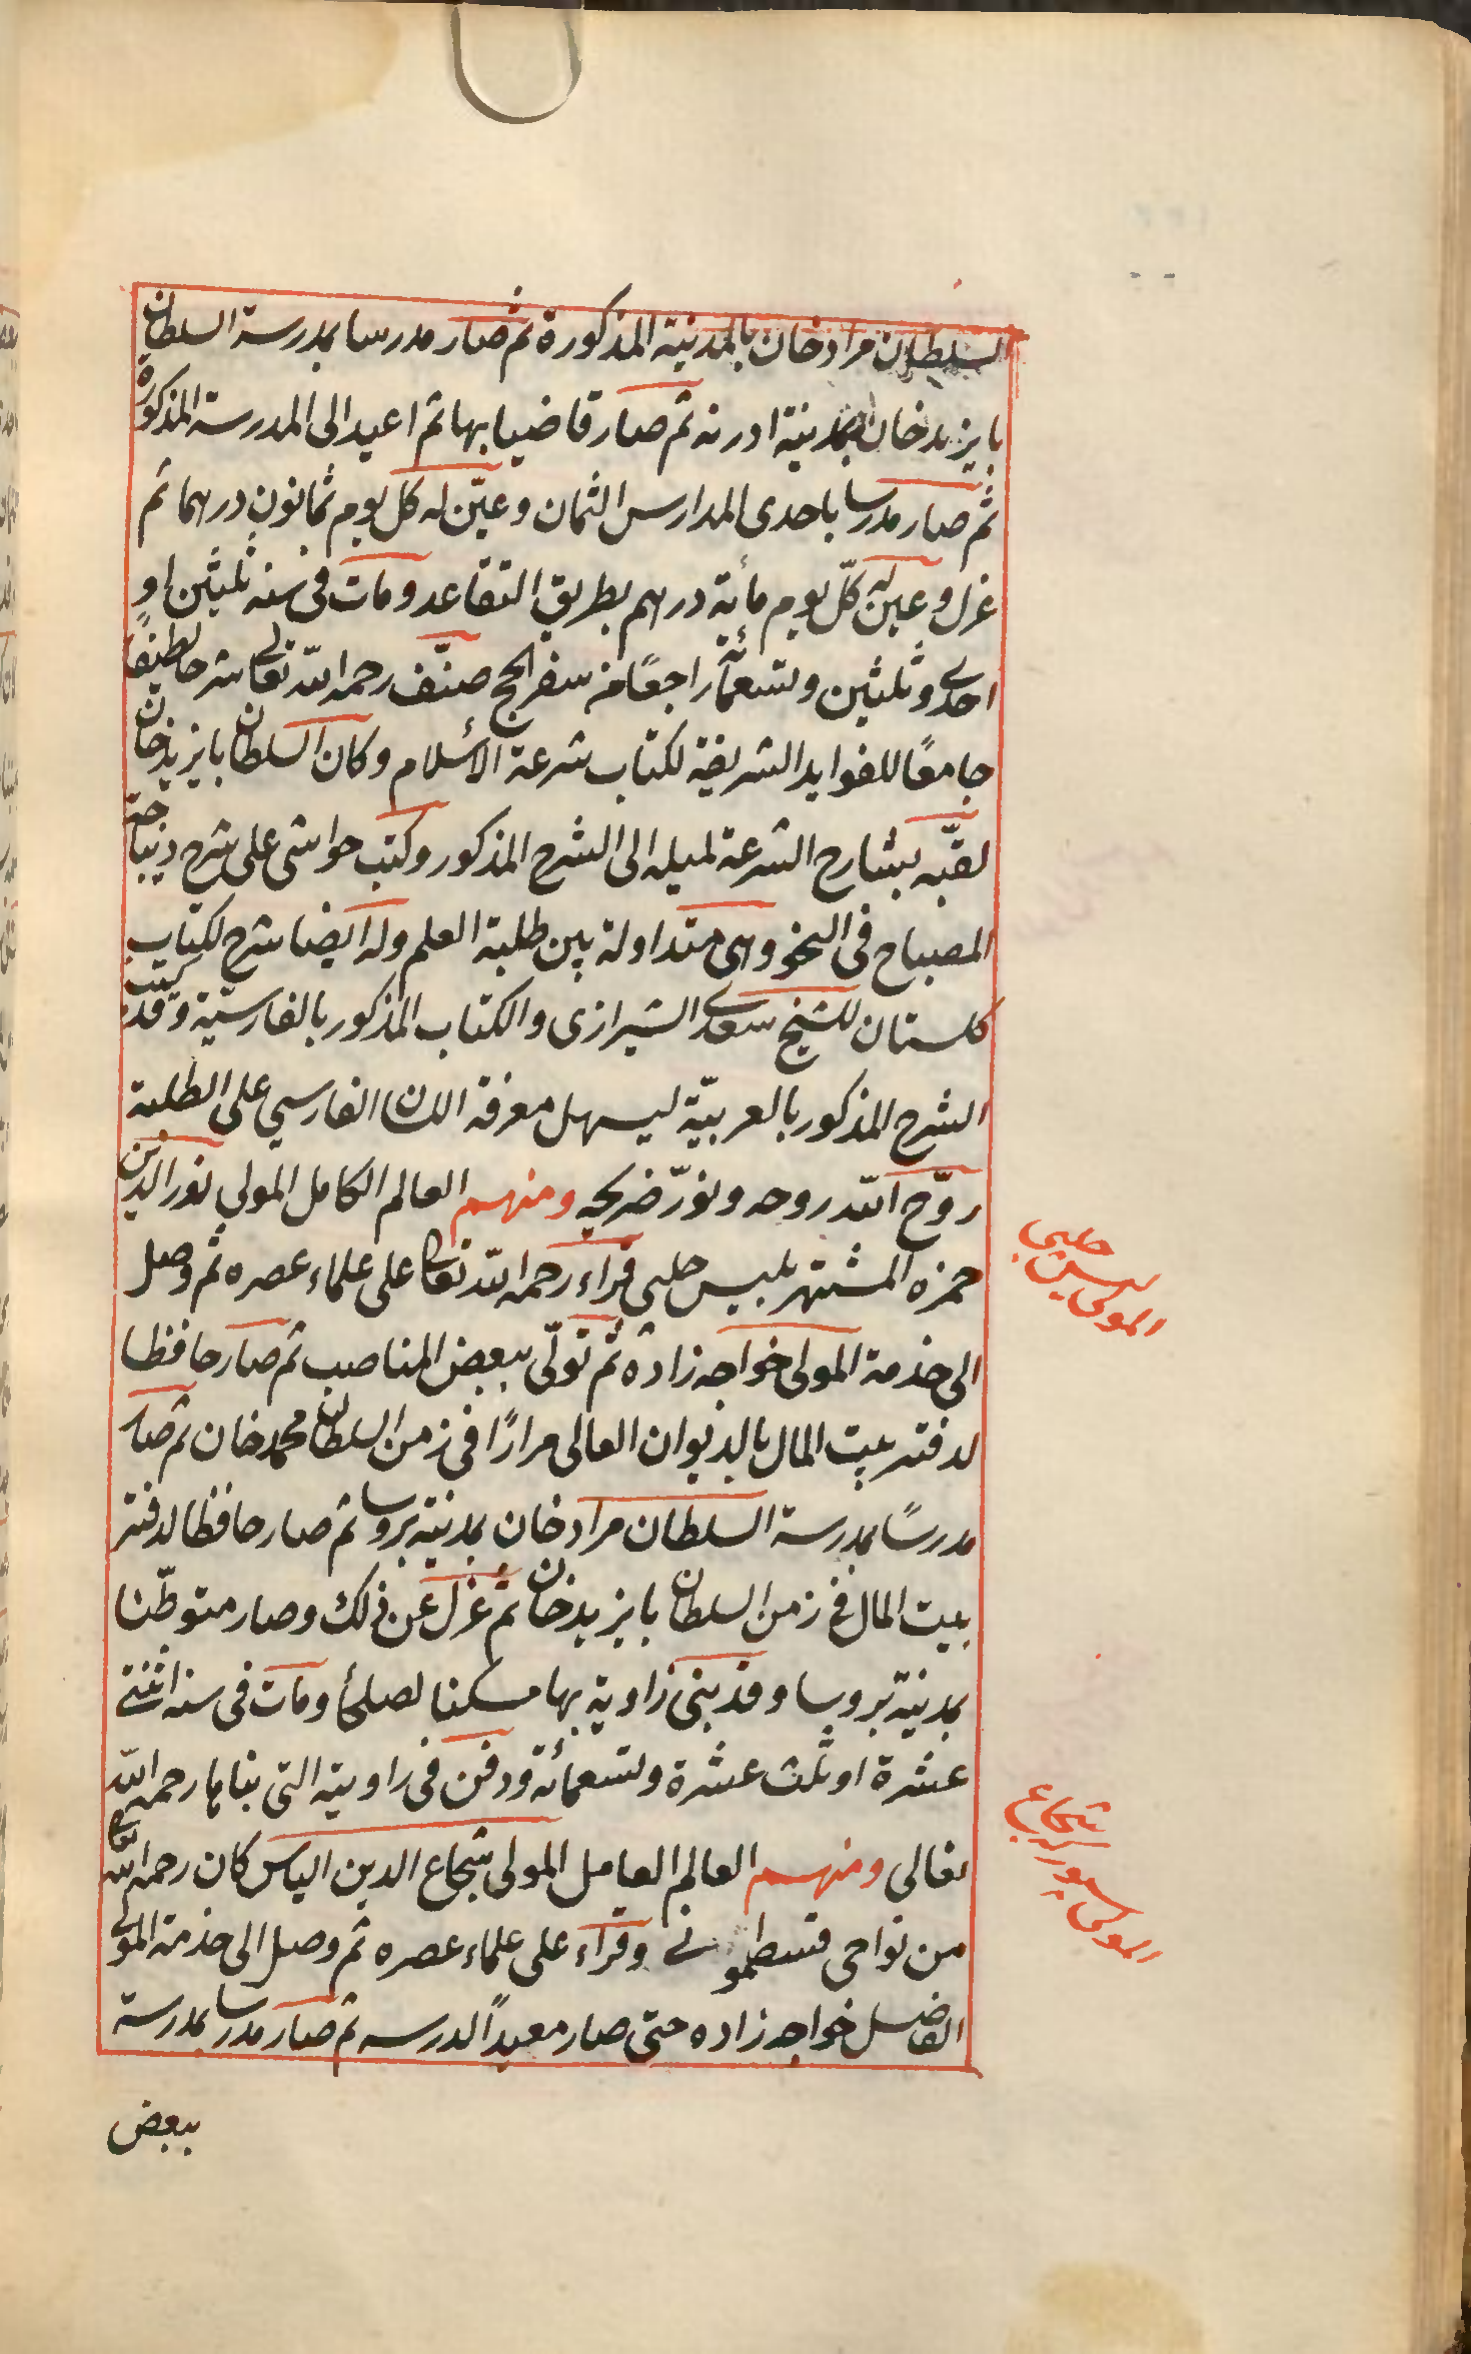 السلطان مراد خان بالمدينة المذكورة ثم صار مدرسا بمدرسة السلطان
بايزيد خان بمدينة ادرنه ثم صار قاضيا بها ثم اعيد الى المدرسة المذكورة
ثم صار مدرسا باحدى المدارس الثمان وعيّن له كل يوم ثمانون درهما ثم
عزل وعين له كلّ يوم مأية درهم بطريق التقاعد ومات فى سنه ثلثين او
احدى وثلثين وتسعمائة راجعًا من سفر الحج صنّف رحمه الله تعالى شرحا لطيفًا
جامعًا للفوايد الشريفة لكتاب شرعة الاسلام وكان السلطان بايزيد خان
لقبّه بشارح الشرعة لميله الى الشرح المذكور وكتب حواشى على شرح ديباجة
المصباح فى النحو وهى متداولة بين طلبة العلم وله ايضا شرح لكتاب
كلستان للشيخ سعدى الشيرازى والكتاب المذكور بالفارسيّة وقد كتب
الشرح المذكور بالعربيّة ليسهل معرفة اللسان الفارسي على الطلبة
روّح الله روحه ونوّر ضريحه ومنهم العالم الكامل المولى نور الدين
حمزه المشتهر بليس جلبى قراء رحمه الله تعالى على علماء عصره ثم وصل
الى خدمة المولى خواجه زاده ثم تولّى ببعض المناصب ثم صار حافظا
لدفتر بيت المال بالديوان العالى مرارًا فى زمن السلطان محمد خان ثم صار
مدرسًا بمدرسة السلطان مراد خان بمدينة بروسا ثم صار حافظا لدفتر
بيت المال فى زمن السلطان بايزيد خان ثم عزل عن ذلك وصار متوطّنا
بمدينة بروسا وقد بنى زاوية بها مسكنا لصلحأ ومات فى سنه اثنتى
عشرة او ثلث عشرة وتسعمائة ودفن فى زاويته التى بناها رحمه الله
تعالى ومنهم العالم العامل المولى شجاع الدين الياس كان رحمه الله تعالى
من نواحى قسطمونى وقراء على علماء عصره ثم وصل الى خدمة المولى
الفاضل خواجه زاده حتى صار معيدًا لدرسه ثم صار مدرسا بمدرسة
ببعض
جلبى
المولى ليس
شجاع
المولى